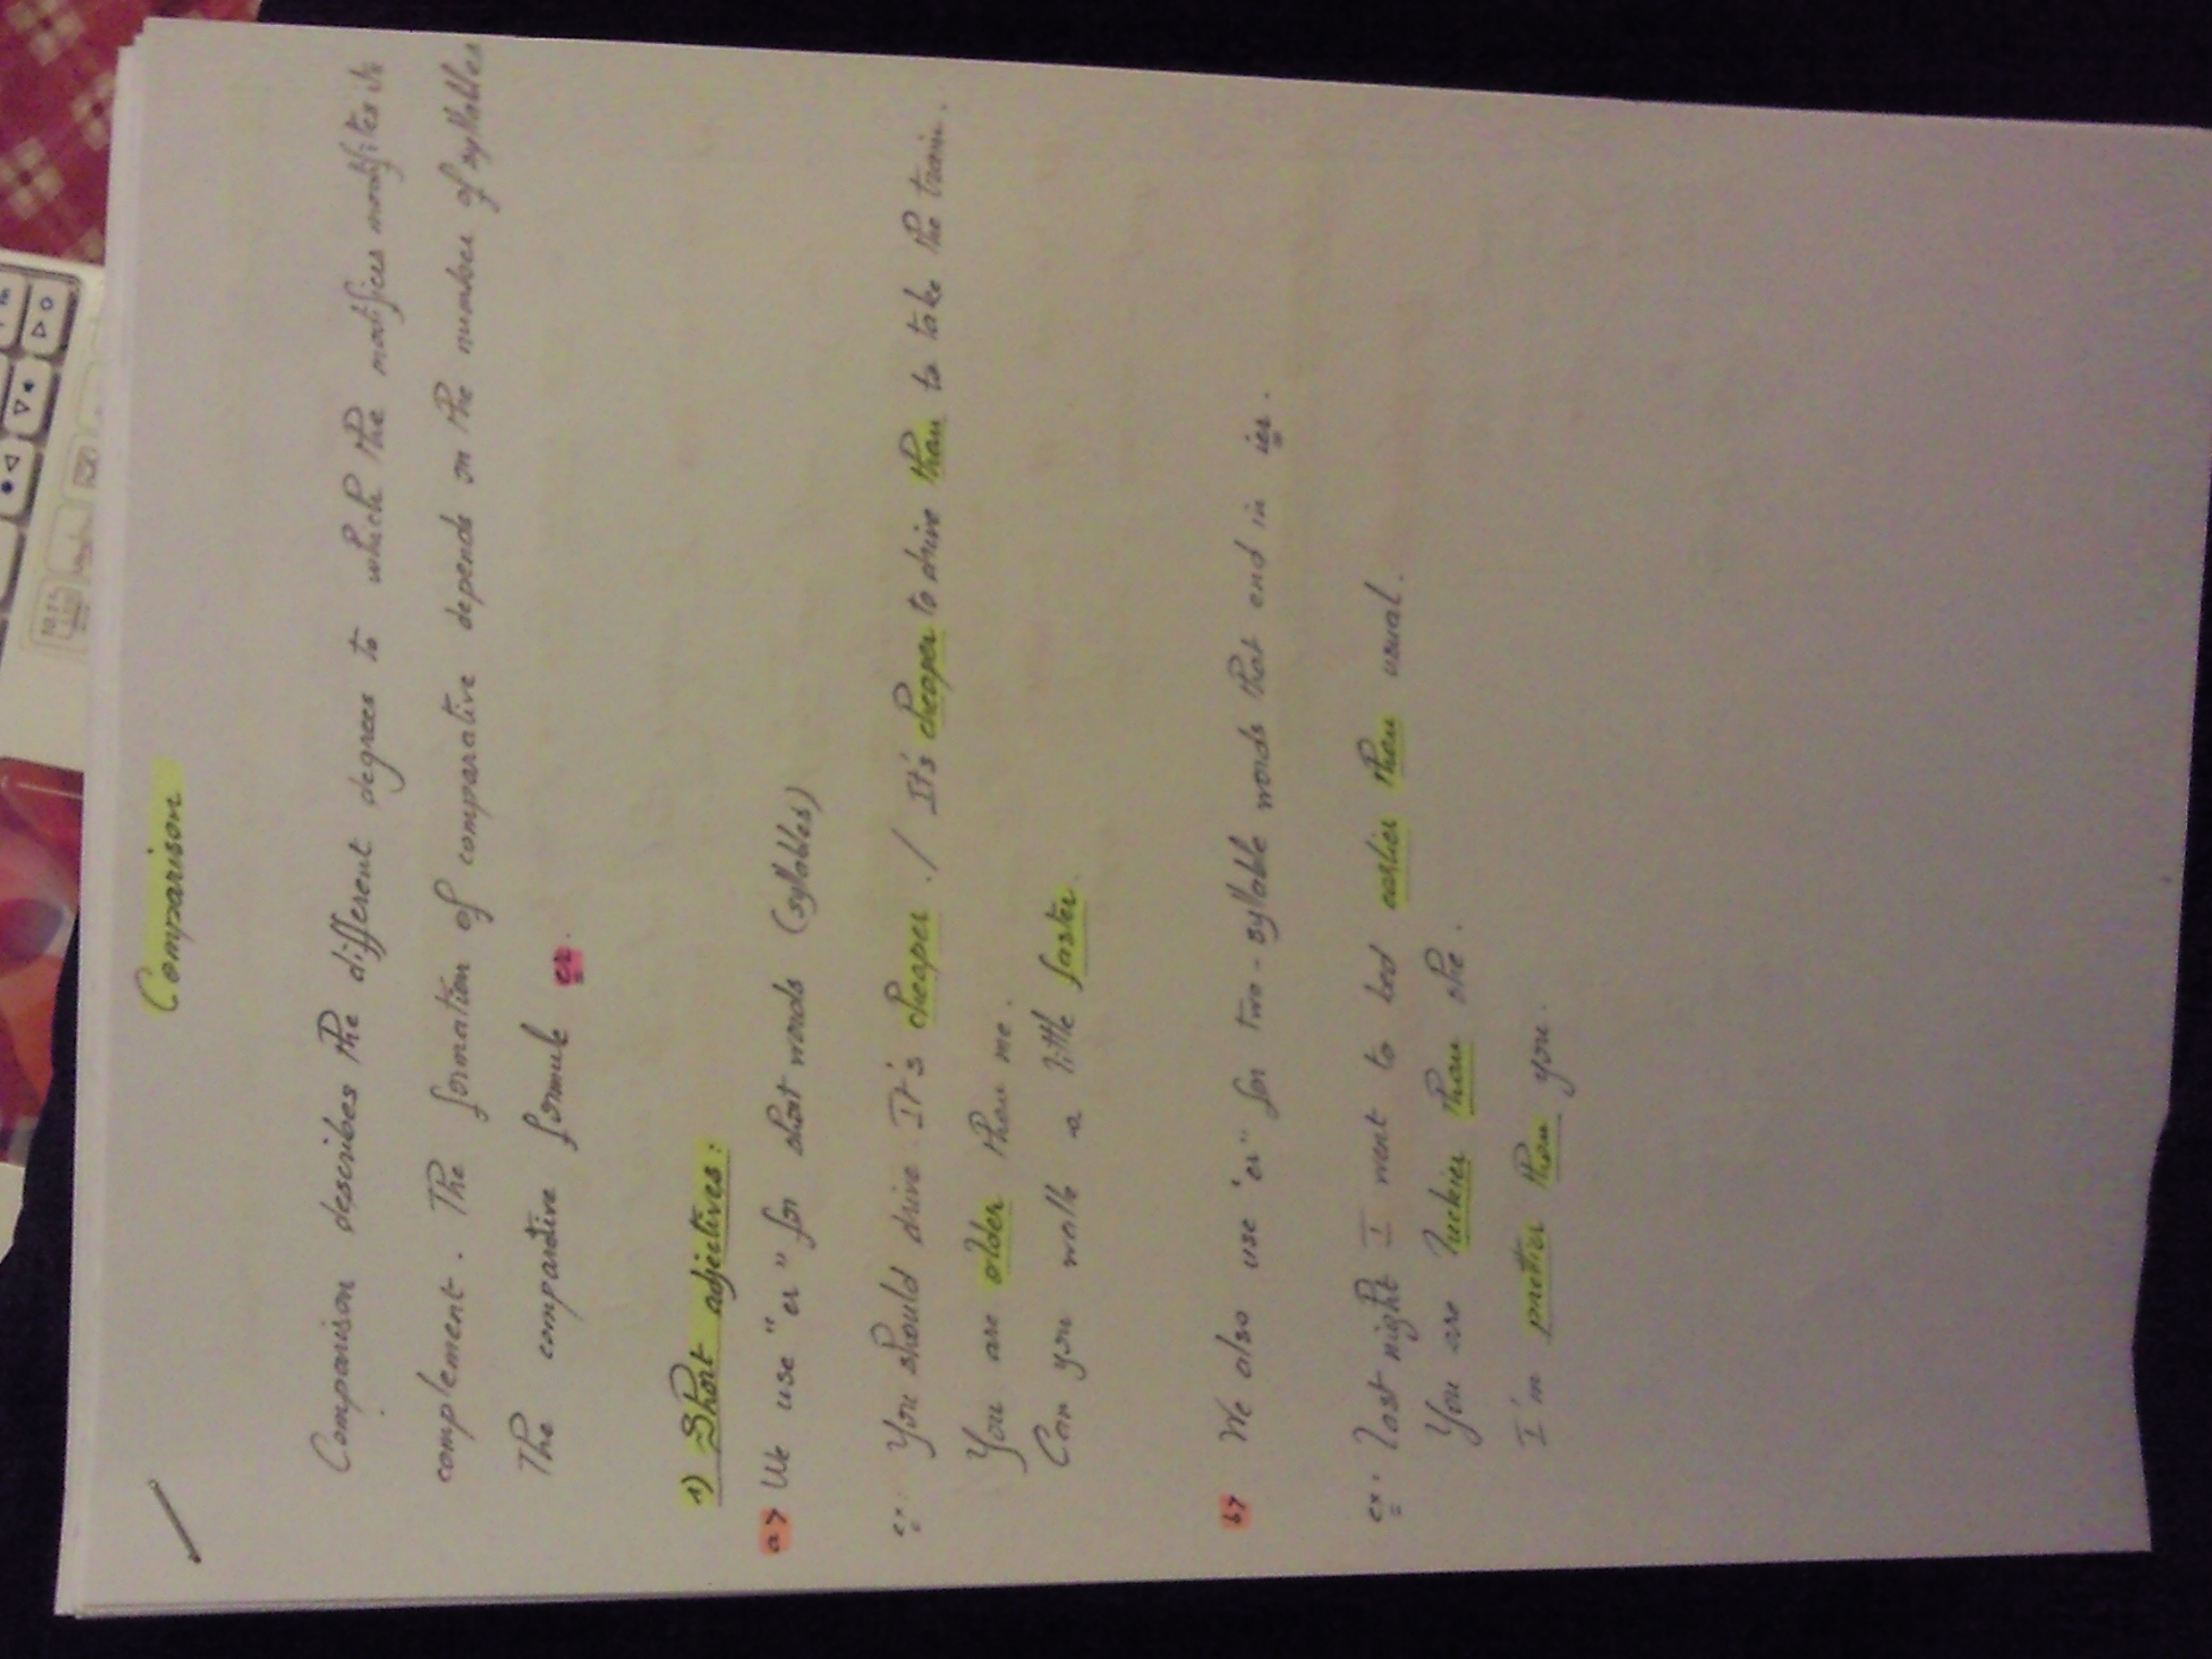 Comparison
Comparison describes the different degrees to which the modifies modifites its
complement. The formation of comparative depends on the number of syllables
The comparative formule er.
1) Short adjectives:
a> We use "er" for short words (syllables)
ex: You should drive. It's cheaper. / It's cheaper to drive than to take the train.
You are older than me.
Can you walk a little faster.
b> We also use "er" for two-syllable words that end in ier.
ex: Last night I went to bed earlier then usual.
You are luckier than she.
I'm prettier than you.